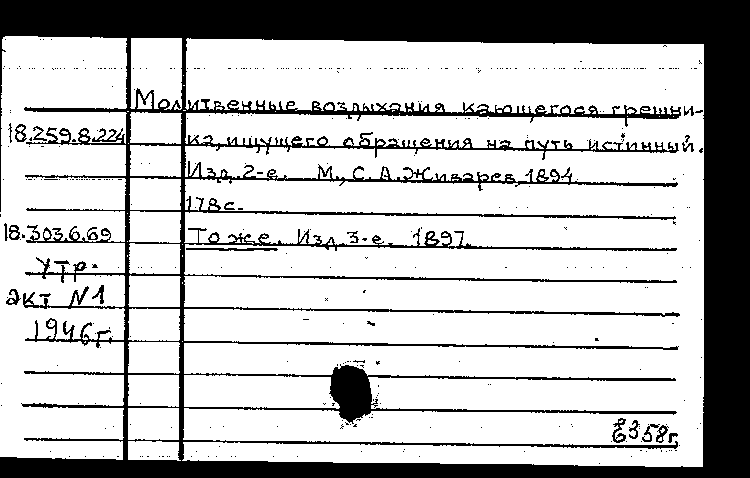 Молитвенные воздыхания кающегося грешни-
18.259.8.224 ка, ищущего обращения на путь истинный.
Изд. 2-е. М., С. А. Живарев, 1894.
178с.
18.303.6.69 То же. Изд. 3-е. 1897.
утр.
акт N1
1946г.